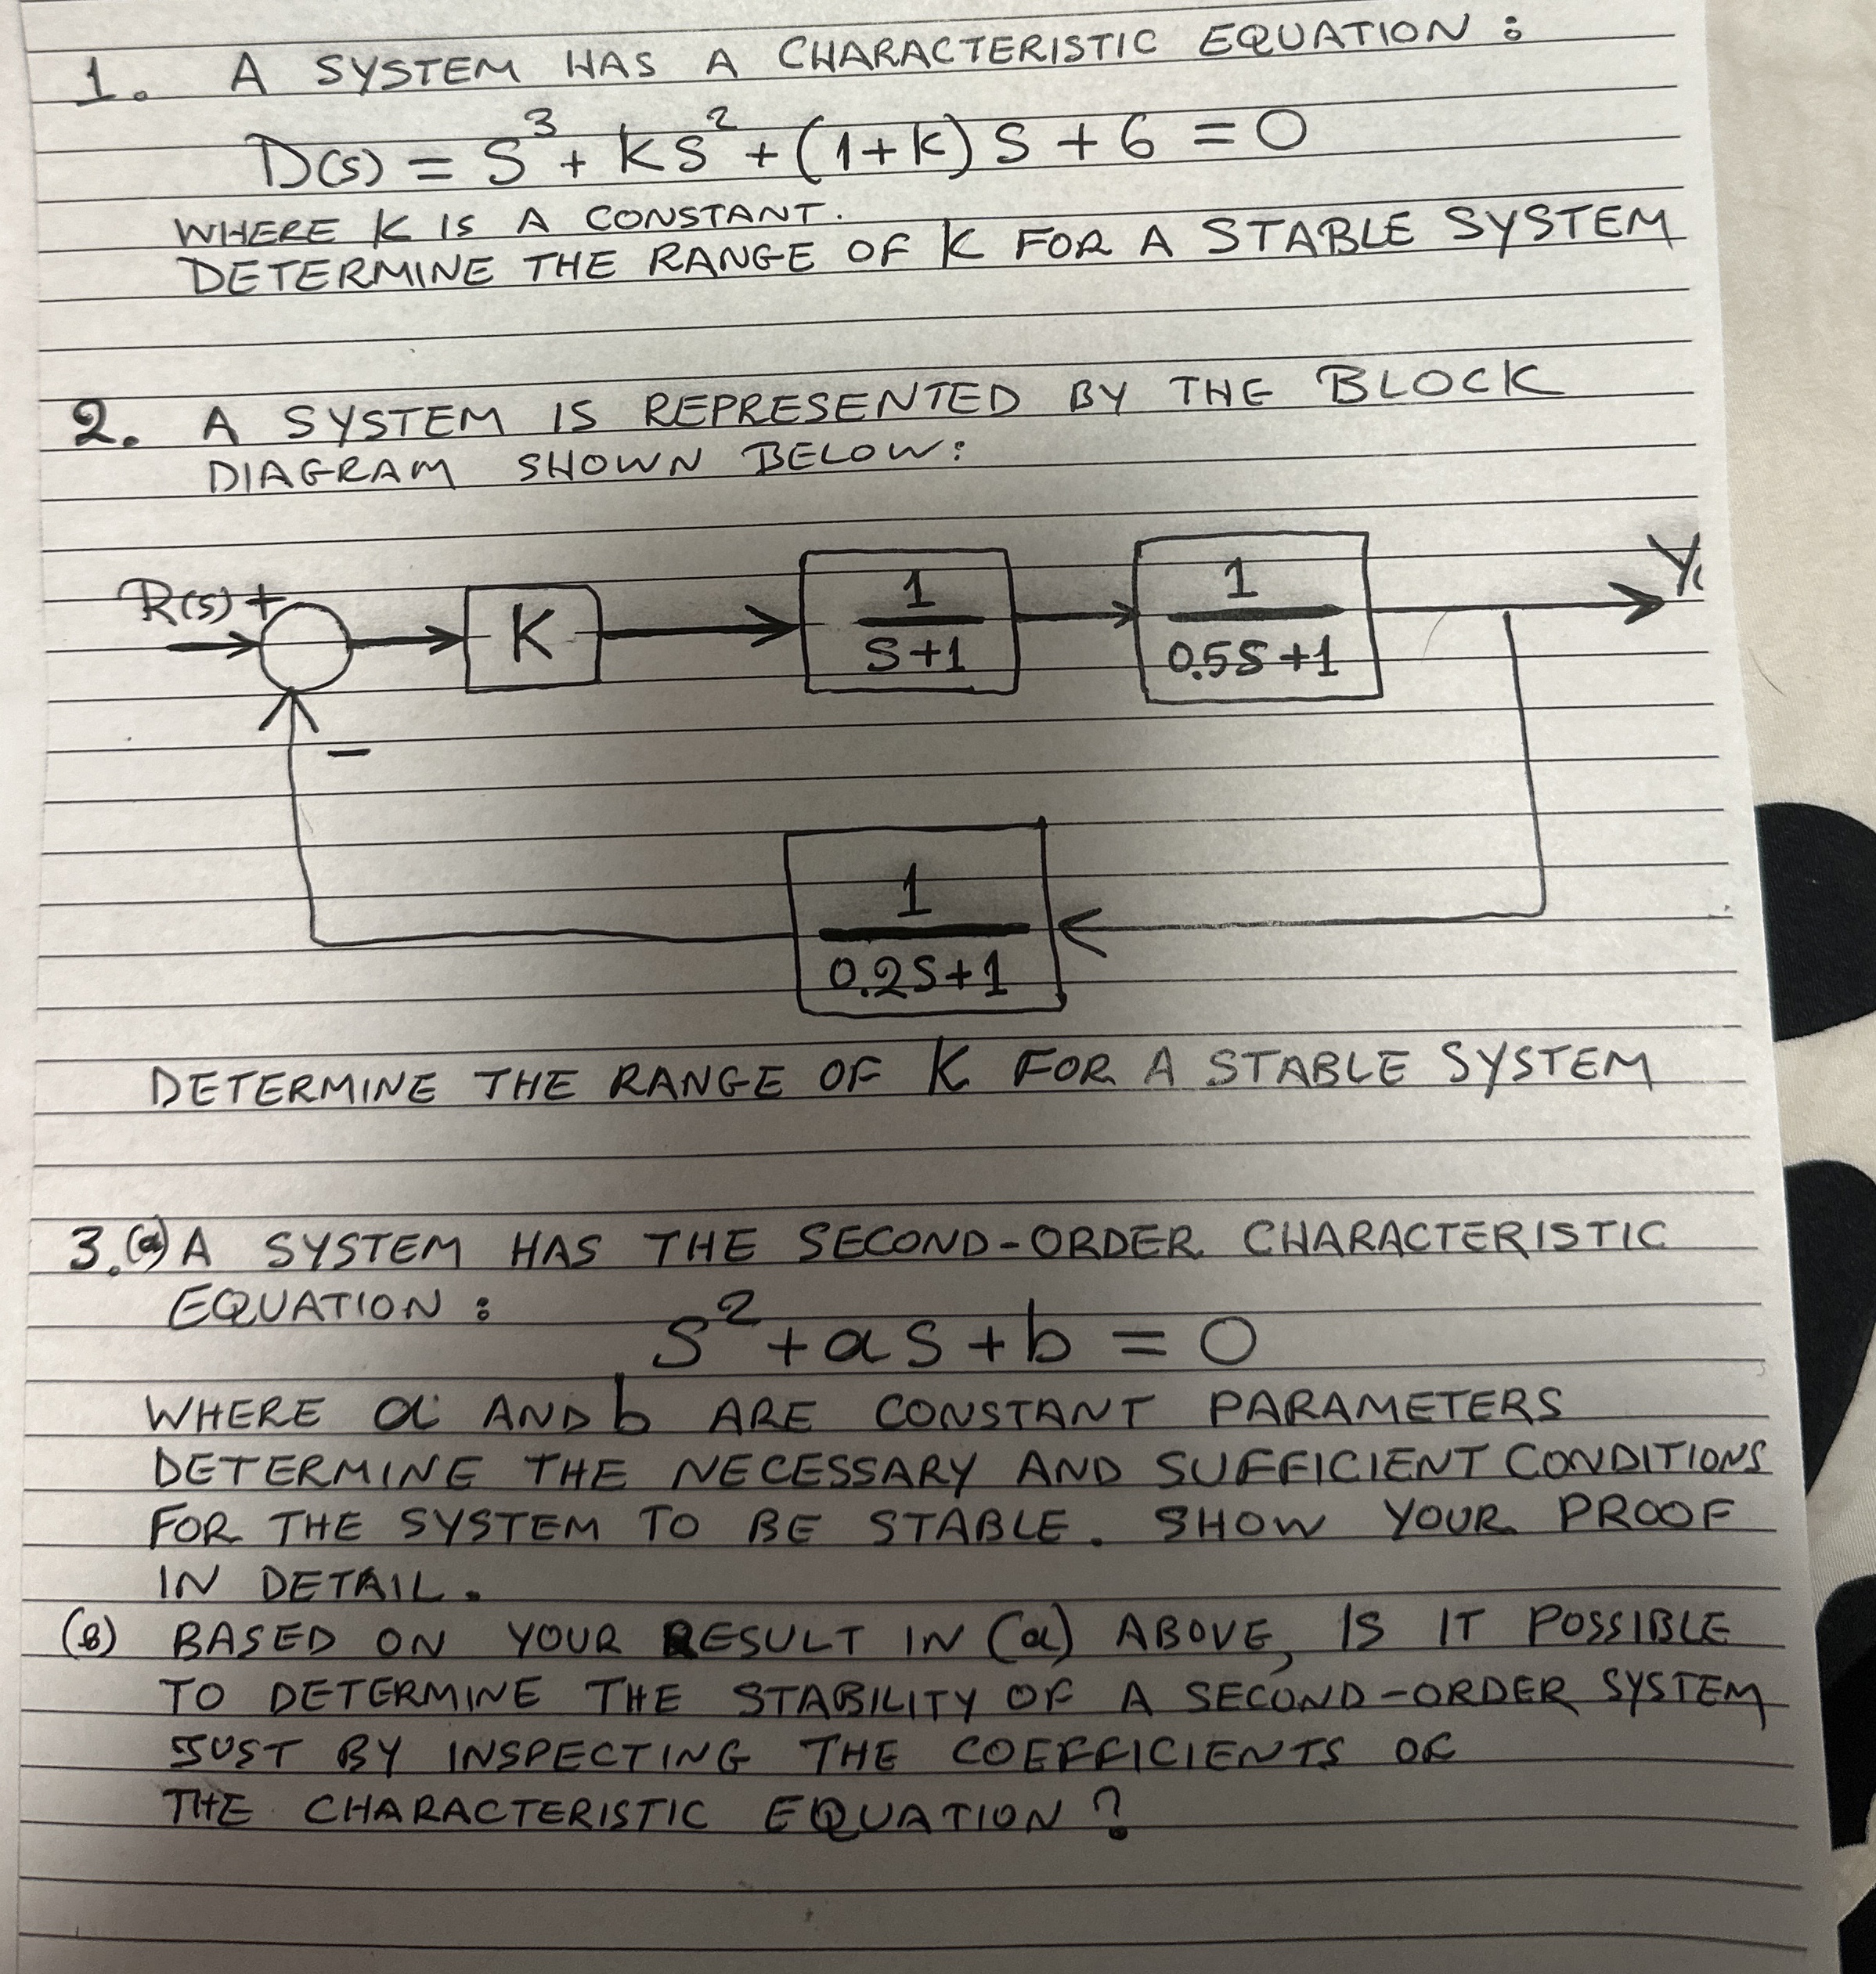 1. A SYSTEM HAS A CHARACTERISTIC EQUATION :
D(s) = S³ + KS² + (1+K) S + 6 = 0
WHERE K IS A CONSTANT.
DETERMINE THE RANGE OF K FOR A STABLE SYSTEM
2. A SYSTEM IS REPRESENTED BY THE BLOCK
DIAGRAM SHOWN BELOW:
R(s) +
K
1
S+1
1
0.5S+1
Y(
−
1
0.2S+1
DETERMINE THE RANGE OF K FOR A STABLE SYSTEM
3.(a) A SYSTEM HAS THE SECOND-ORDER CHARACTERISTIC
EQUATION :
S² + aS + b = 0
WHERE a AND b ARE CONSTANT PARAMETERS
DETERMINE THE NECESSARY AND SUFFICIENT CONDITIONS
FOR THE SYSTEM TO BE STABLE. SHOW YOUR PROOF
IN DETAIL.
(B) BASED ON YOUR RESULT IN (a) ABOVE, IS IT POSSIBLE
TO DETERMINE THE STABILITY OF A SECOND-ORDER SYSTEM
JUST BY INSPECTING THE COEFFICIENTS OF
THE CHARACTERISTIC EQUATION ?